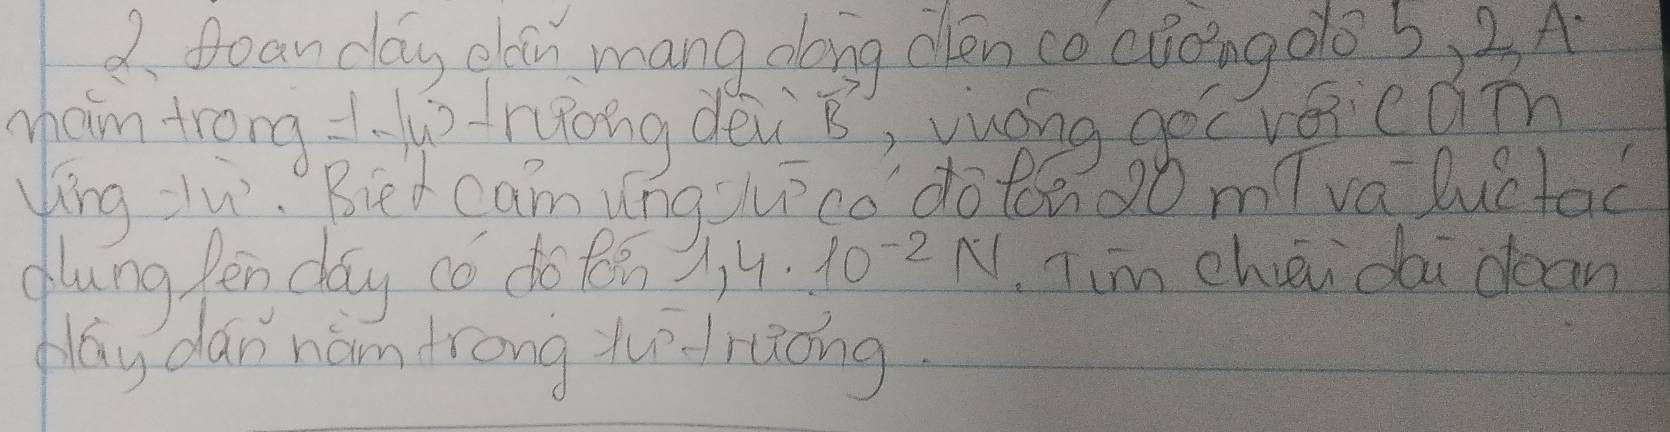 2. Đoạn dây dẫn mang dòng điện có cường độ 5,2 A
nằm trong 1 từ trường đều B⃗, vuông góc với cảm
ứng từ. Biết cảm ứng từ có độ lớn 20 mT và lực tác
dụng lên dây có độ lớn 1,4.10⁻² N. Tìm chiều dài đoạn
dây dẫn nằm trong từ trường.